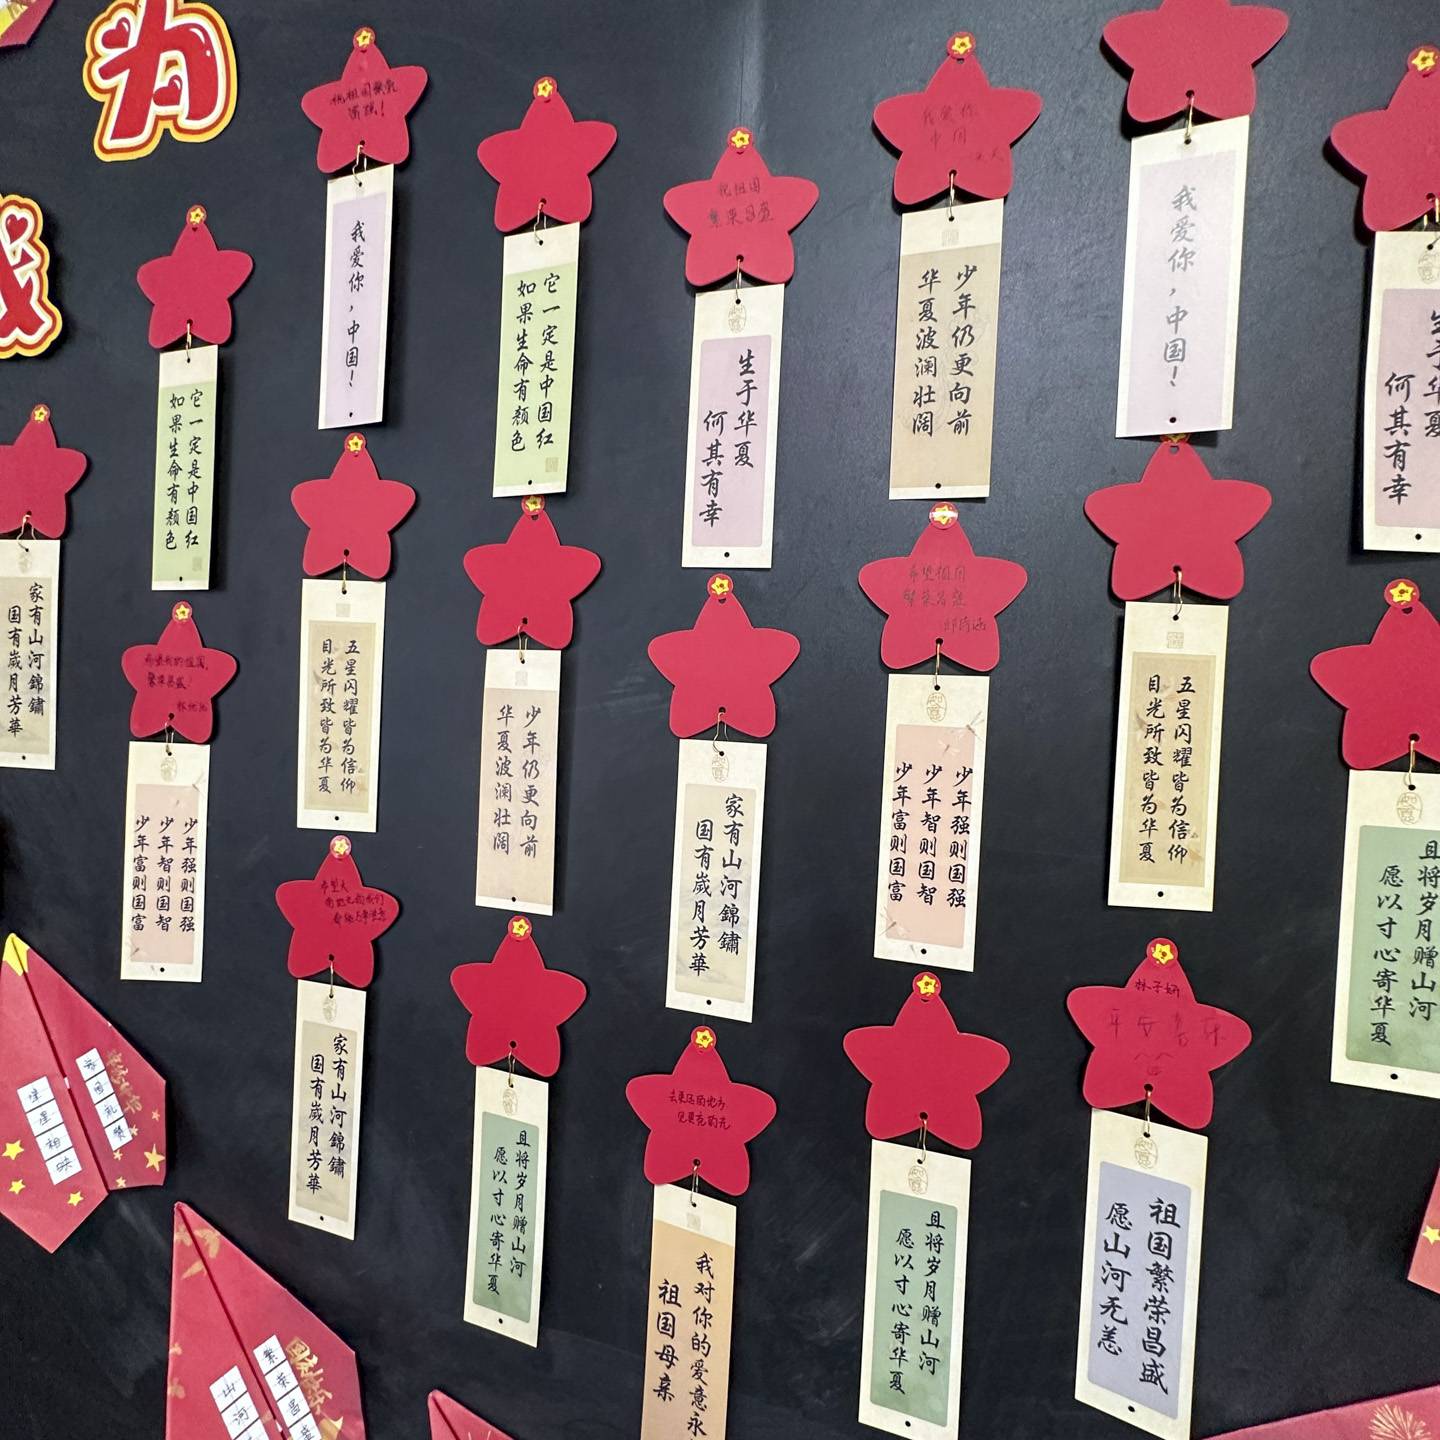 为
我
祝祖国繁荣
富强!
我爱你，中国！
它一定是中国红
如果生命有颜色
祝祖国
繁荣昌盛
生于华夏
何其有幸
我爱你
中国
少年仍更向前
华夏波澜壮阔
我爱你，中国！
生于华夏
何其有幸
它一定是中国红
如果生命有颜色
家有山河錦鏽
国有歲月芳華
希望我的祖国,
繁荣昌盛!
少年强则国强
少年智则国智
少年富则国富
五星闪耀皆为信仰
目光所致皆为华夏
少年仍更向前
华夏波澜壮阔
家有山河錦鏽
国有歲月芳華
希望祖国
繁荣昌盛
少年强则国强
少年智则国智
少年富则国富
五星闪耀皆为信仰
目光所致皆为华夏
且将岁月赠山河
愿以寸心寄华夏
希望大
家有山河錦鏽
国有歲月芳華
且将岁月赠山河
愿以寸心寄华夏
去更远的地方
见更亮的光
我对你的爱意永
祖国母亲
且将岁月赠山河
愿以寸心寄华夏
林子妍
平安喜乐
祖国繁荣昌盛
愿山河无恙
家国礼赞
星星相映
繁荣昌盛
山河